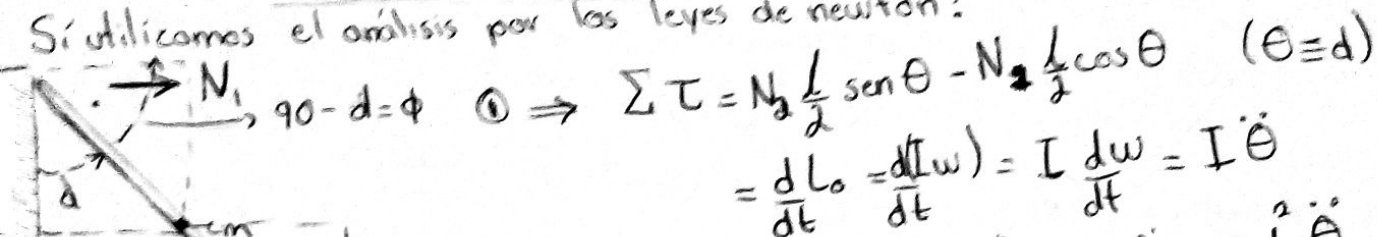 Si utilicamos el análisis por las leyes de newton:
N₁ 90-d=ϕ ① ⇒ Σ τ = N₂ L/2 sen θ - N₁ L/2 cos θ (θ≡d)
d = dL₀/dt = d(Iω)/dt = I dω/dt = I θ̈
cm